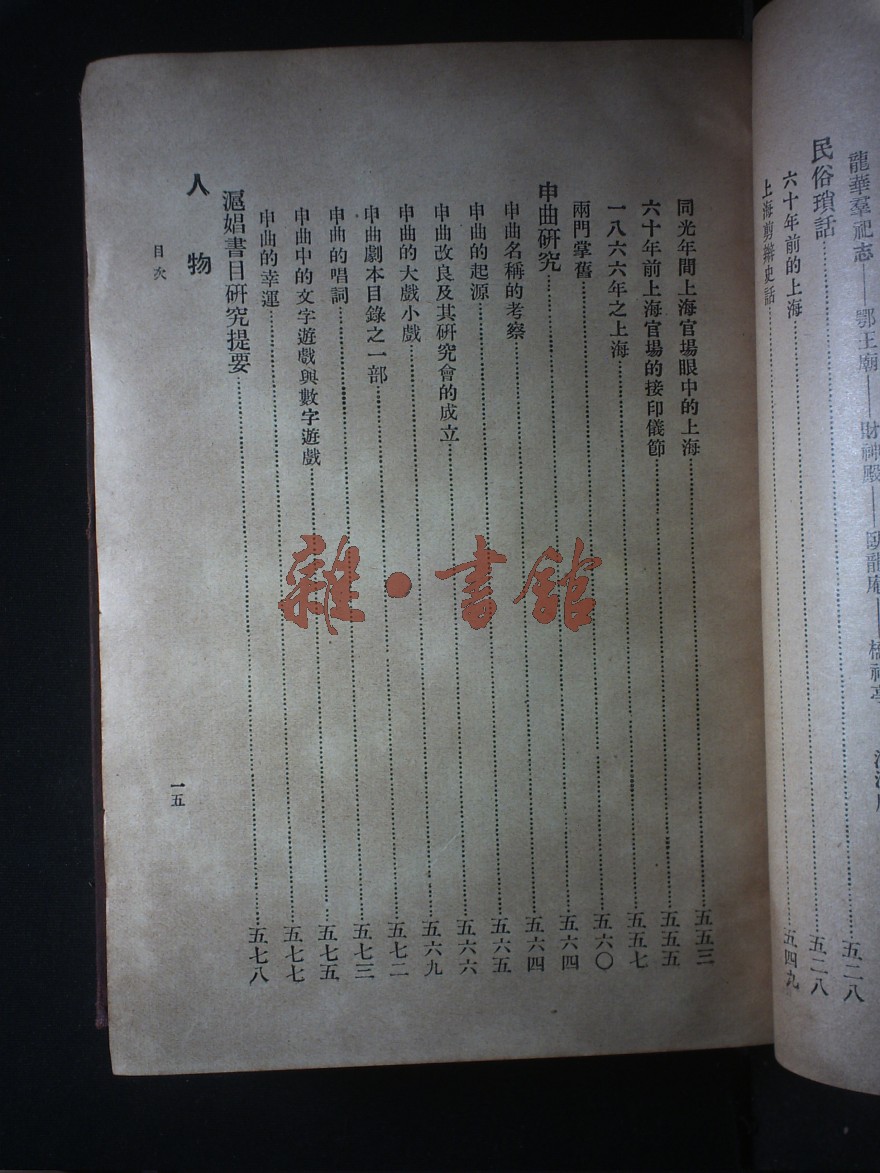 龍華羣祀志——鄂王廟——財神殿——
民俗瑣話……五二八
六十年前的上海……五二八
上海剪辮史話……五四九
同光年間上海官場眼中的上海……五五三
六十年前上海官場的接印儀節……五五五
一八六六年之上海……五五七
兩門掌舊……五六〇
申曲研究……五六四
申曲名稱的考察……五六四
申曲的起源……五六五
申曲改良及其研究會的成立……五六六
申曲的大戲小戲……五六九
申曲劇本目錄之一部……五七二
申曲的唱詞……五七三
申曲中的文字遊戲與數字遊戲……五七五
申曲的幸運……五七七
滬娼書目研究提要……五七八
人物
目次
一五
雜·書館